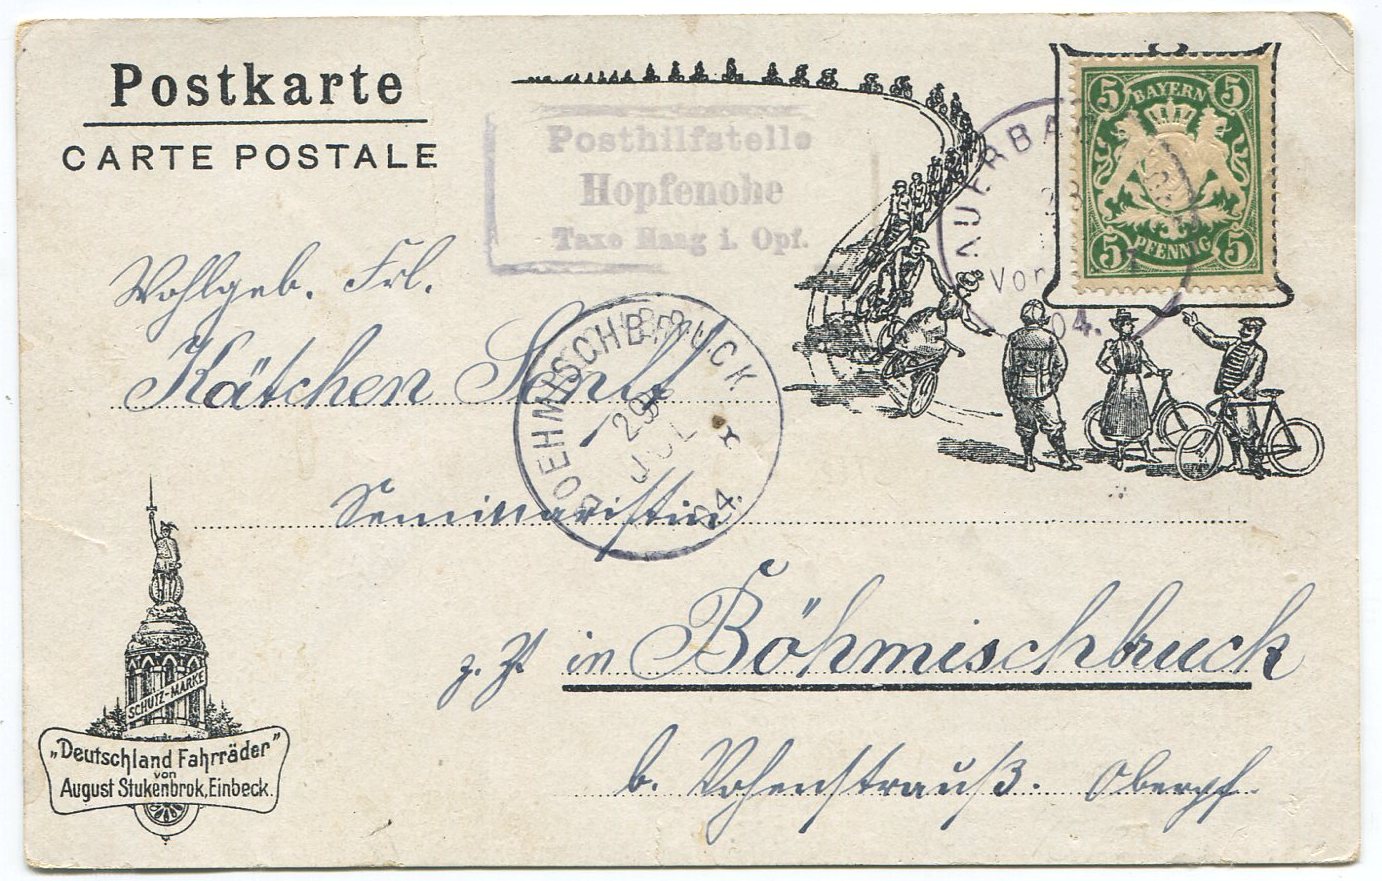 Postkarte
CARTE POSTALE
Posthilfstelle
Hopfenohe
Taxe Haag i. Opf.
AUERBA
Vor
04.
5 BAYERN 5
5 PFENNIG 5
Wohlgeb. Frl.
Kätchen
BOEHMISCHBRUCK
29
JUL
04.
Seminaristin
z. Zt in Böhmischbruck
b. Vohenstrauß. Oberpf.
SCHUTZ-MARKE
„Deutschland Fahrräder"
von
August Stukenbrok, Einbeck.